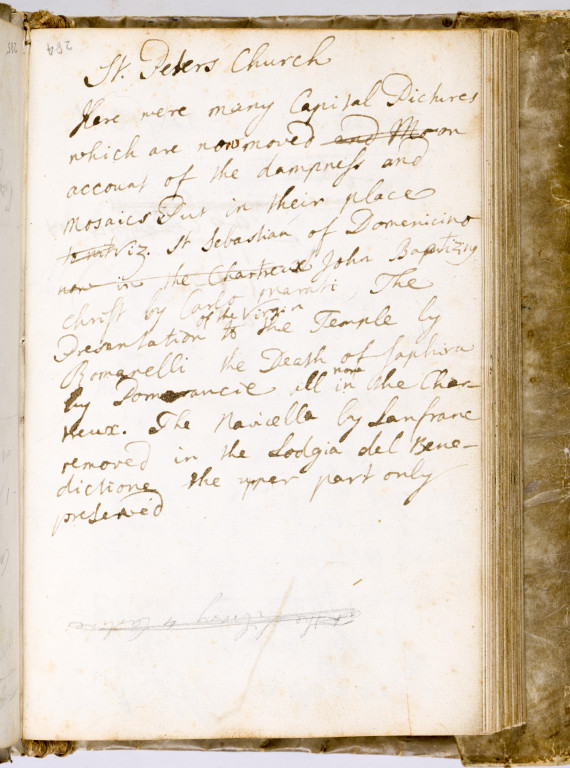 284
St. Peters Church
Here were many Capital Pictures
which are now moved and Mo on
account of the dampness and
Mosaics Put in their place
to wit Viz. St Sebastian of Domenicino
now in the Chartreux John Baptizing
Christ by Carlo maratti, The
of the Virgin
Presentation to the Temple by
Romanelli the Death of Saphira
now
by Pomerancie all in the Char-
treux. The Navicella by Lanfranc
removed in the Lodgia del Bene-
dictione the upper part only
preserved